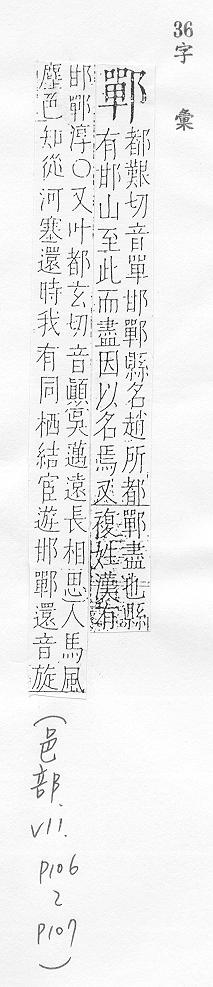 36
字彙
鄲
都艱切音單邯鄲縣名趙所都鄲盡也縣
有邯山至此而盡因以名焉又複姓漢有
邯鄲淳○又叶都玄切音顚吳邁遠長相思人馬風
塵色知從河塞還時我有同栖結宦遊邯鄲還音旋
(邑部.
VII.
P106
2
P107)